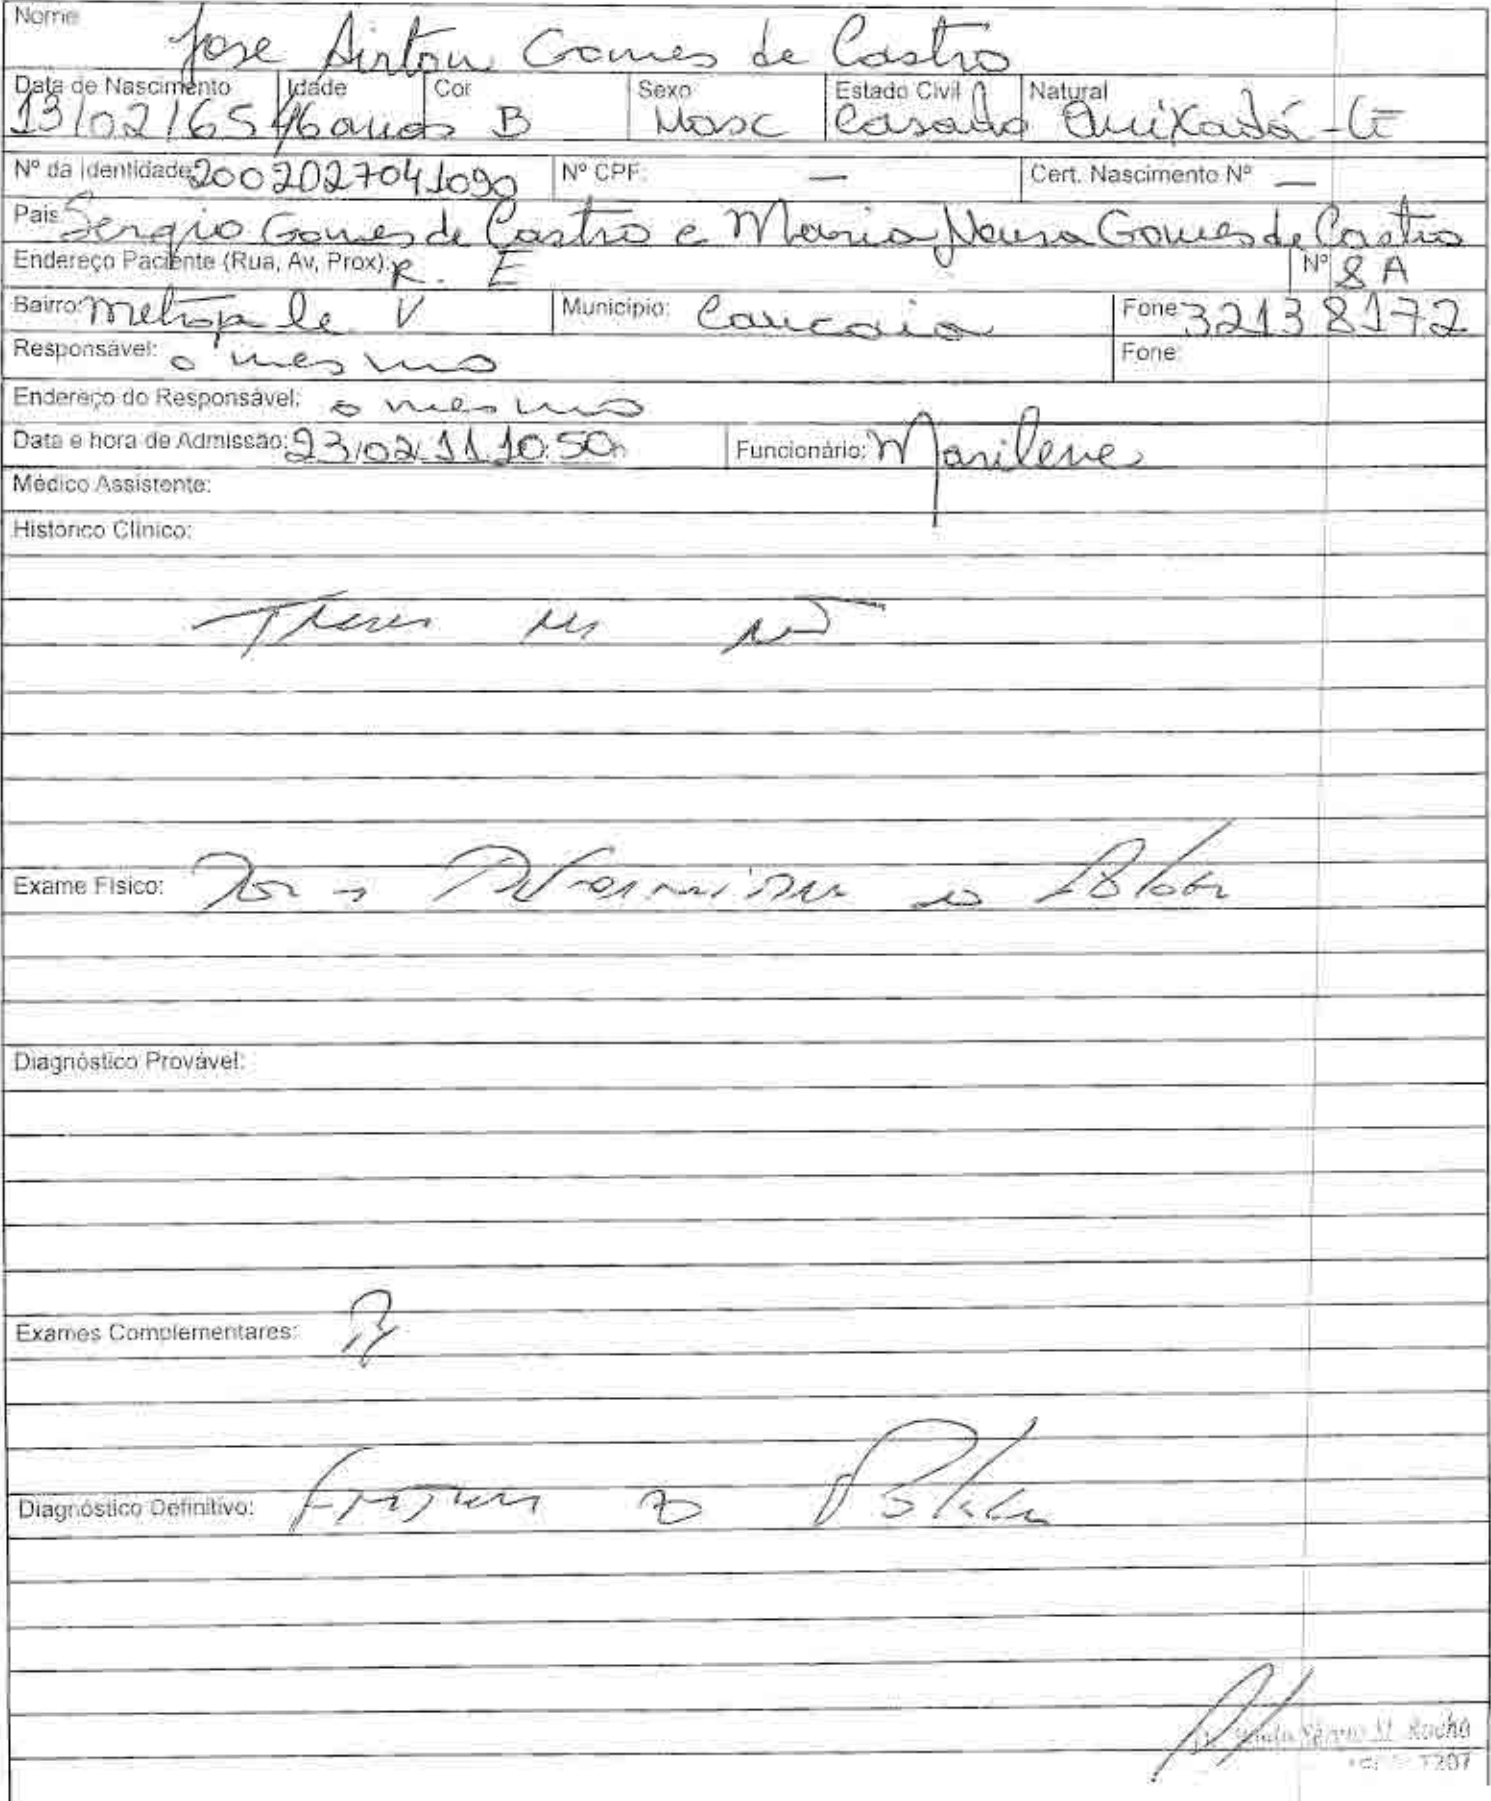 Nome Jose Airton Gomes de Castro
Data de Nascimento 13/02/65 Idade 46 anos Cor B Sexo Masc Estado Civil Casado Natural Quixadá-CE
Nº da Identidade: 2002027041090 Nº CPF: — Cert. Nascimento Nº —
Pais: Sergio Gomes de Castro e Maria Neusa Gomes de Castro
Endereço Paciente (Rua, Av, Prox): R. E Nº 8 A
Bairro: Metropole V Município: Caucaia Fone: 32138172
Responsável: o mesmo Fone:
Endereço do Responsável: o mesmo
Data e hora de Admissão: 23/02/11 10:50h Funcionário: Marilene
Médico Assistente:
Histórico Clínico:
Exame Físico: Dor
Diagnóstico Provável:
Exames Complementares:
Diagnóstico Definitivo:
Rocha
7207